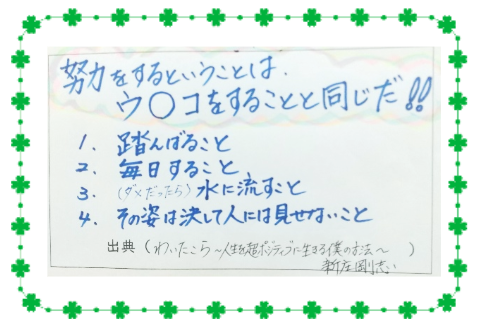 努力をするということは、
ウ〇コをすることと同じだ!!
1. 踏んばること
2. 毎日すること
3. (ダメだったら) 水に流すこと
4. その姿は決して人には見せないこと
出典 (わいたこら 〜人生を超ポジティブに生きる僕の方法〜 )
新庄剛志